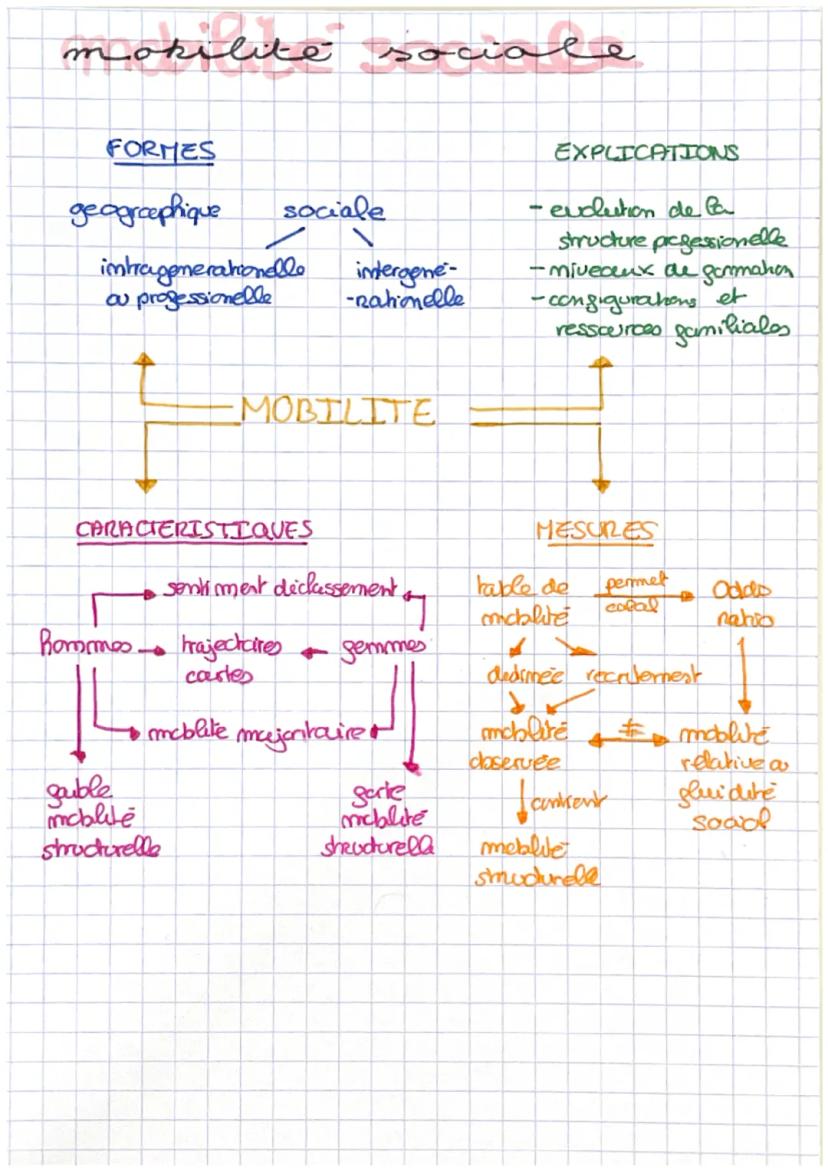 mobilité sociale
FORMES
geographique sociale
intragenerationelle
ou professionelle
intergené-
-rationelle
EXPLICATIONS
- evolution de la
structure professionelle
- niveaux de formation
- configurations et
ressources familiales
MOBILITE
CARACTERISTIQUES
sentiment déclassement
hommes trajectoires femmes
courtes
mobilité majoritaire
faible
mobilité
structurelle
forte
mobilité
structurelle
MESURES
table de
mobilité
permet
calcul
Odds
ratio
destinée recrutement
mobilité
observée
≠
mobilité
relative ou
fluidité
social
contient
mobilité
structurelle